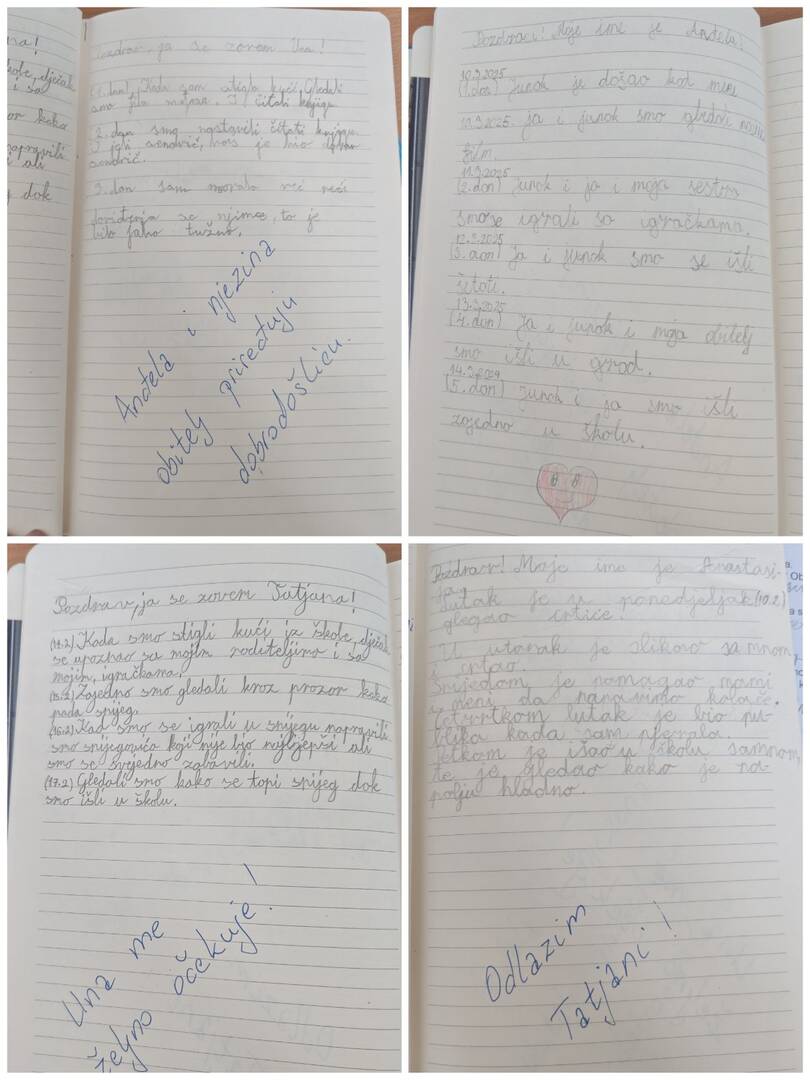 na!
škole, dječak
i sa
zor kako
napravili
i ali
dok
Pozdrav, ja se zovem Una!
(1.dan) Kada sam stigla kući. Gledali
smo film navečer. I čitali knjigu
2. dan smo nastavili čitati knjigu.
I jeli sendvič, je bio
sendvič.
3. dan sam morala već reći
doviđenja se njime, to je
bilo jako tužno.
Anđela i njezina
obitelj priređuju
dobrodošlicu.
Pozdravi! Moje ime je Anđela!
10.2.2025
(1.dan) Junak je došao kod mene
10.2.2025. ja i junak smo gledali
film.
11.2.2025
(2.dan) Junak i ja i moja sestra
smose igrali sa igračkama.
12.2.2025
(3.dan) Ja i junak smo se išli
šetati.
13.2.2025
(4.dan) Ja i junak i moja obitelj
smo išli u grad.
(5.dan) Junak i ja smo išli
zajedno u školu.
Pozdrav, ja se zovem Tatjana!
(14.2) Kada smo stigli kući iz škole, dječak
se upoznao sa mojim roditeljima i sa
mojim igračkama.
(15.2) Zajedno smo gledali kroz prozor kako
pada snijeg.
(16.2) Kad smo se igrali u snijegu napravili
smo snjegovića koji nije bio najljepši ali
smo se svejedno zabavili.
(17.2) Gledali smo kako se topi snijeg dok
smo išli u školu.
Una me
željno očekuje!
Pozdrav! Moje ime je Anastasi-
ja,
Lutak je u ponedjeljak (10.2)
gledao crtiće.
U utorak je slikao samnom
i crtao.
Srijedom je pomagao mami
i meni da napravimo kolače.
Četvrtkom lutak je bio pu-
blika kada sam pjevala
Petkom je išao u školu samnom,
te je gledao kako je na-
polju hladno.
Odlazim
Tatjani!